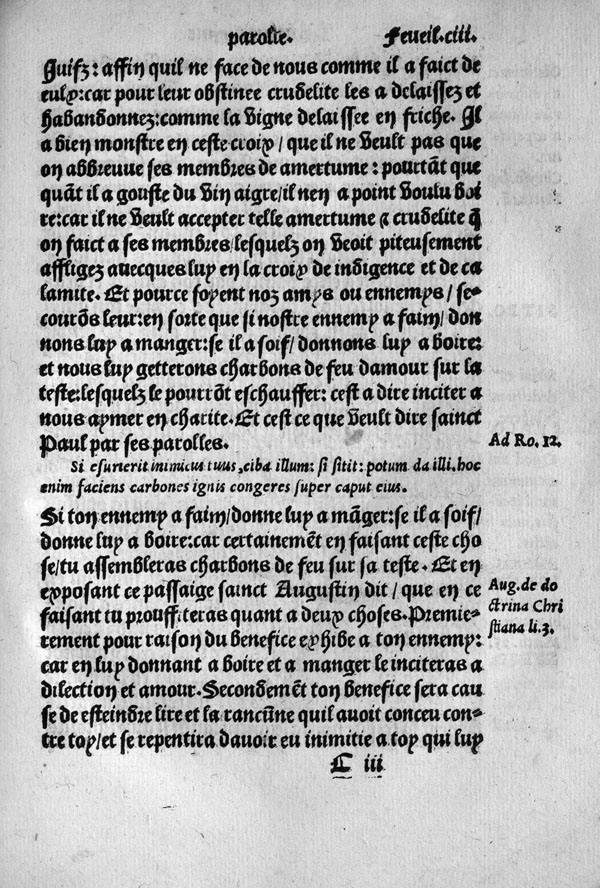 parolle. Feueil.ciii.
Juifz: affin quil ne face de nous comme il a faict de
eulx: car pour leur obstinee crudelite les a delaissez et
habandonnez: comme la vigne delaissee en friche. Il
a bien monstre en ceste croix/ que il ne veult pas que
on abbreuue ses membres de amertume: pourtãt que
quãt il a gouste du vin aigre/ il nen a point voulu boi
re: car il ne veult accepter telle amertume ⁊ crudelite q̃
on faict a ses membres/ lesquelz on veoit piteusement
affligez auecques luy en la croix de indigence et de ca
lamite. Et pource soyent noz amys ou ennemys/ se-
courõs leur: en sorte que si nostre ennemy a faim/ don
nons luy a manger: se il a soif/ donnons luy a boire:
et nous luy getterons charbons de feu damour sur la
teste: lesquelz le pourrõt eschauffer: cest a dire inciter a
nous aymer en charite. Et cest ce que veult dire sainct
Paul par ses parolles.
Ad Ro. 12.
Si esurierit inimicus tuus, ciba illum: si sitit: potum da illi. hoc
enim faciens carbones ignis congeres super caput eius.
Si ton ennemy a faim/ donne luy a mãger: se il a soif/
donne luy a boire: car certainemẽt en faisant ceste cho
se/ tu assembleras charbons de feu sur sa teste. Et en
exposant ce passaige sainct Augustin dit/ que en ce
faisant tu prouffiteras quant a deux choses. Premie-
rement pour raison du benefice exhibe a ton ennemy:
car en luy donnant a boire et a manger le inciteras a
dilection et amour. Secondemẽt ton benefice sera cau
se de esteindre lire et la rancũne quil auoit conceu con-
tre toy/ et se repentira dauoir eu inimitie a toy qui luy
Aug. de do
ctrina Chri
stiana li. 3.
C iii